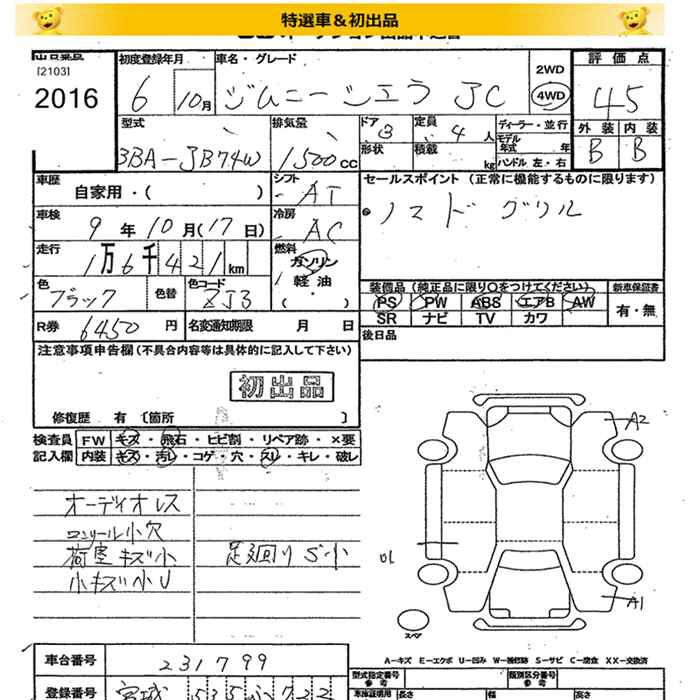 特選車&初出品
[2103]
2016
初度登録年月
6 10月
車名・グレード
ジムニーシエラ JC
2WD
4WD
評価点
45
外装 内装
B B
型式
3BA-JB74W
排気量
1500cc
ドア
3
定員
4人
形状
積載
kg
ディーラー・並行
モデル年式 年
ハンドル 左・右
車歴
自家用・( )
シフト
AT
セールスポイント (正常に機能するものに限ります)
ノマドグリル
車検
9年10月(17日)
冷房
AC
走行
1万6千421km
燃料
ガソリン
軽油
( ・ )
色
ブラック
色替
色コード
ZJ3
装備品(純正品に限り○をつけてください)
PS PW ABS エアB AW
SR ナビ TV カワ
新車保証書
有・無
R券 6450円
名変通知期限 月 日
後日品
注意事項申告欄(不具合内容等は具体的に記入して下さい)
初出品
修復歴 有 〔箇所 〕
検査員記入欄
FW キズ・飛石・ヒビ割・リペア跡・×要
内装 キズ・汚レ・コゲ・穴・スレ・キレ・破レ
オーディオレス
コンソール小穴
荷室キズ小
小キズ小U
足廻りS小
A2
A1
スペア
A-キズ E-エクボ U-凹み W-補修跡 S-サビ C-腐食 XX-交換済
車台番号
231799
登録番号
宮城
型式指定番号
参考
類別区分番号
参考
車検証明用
長さ
幅
高さ